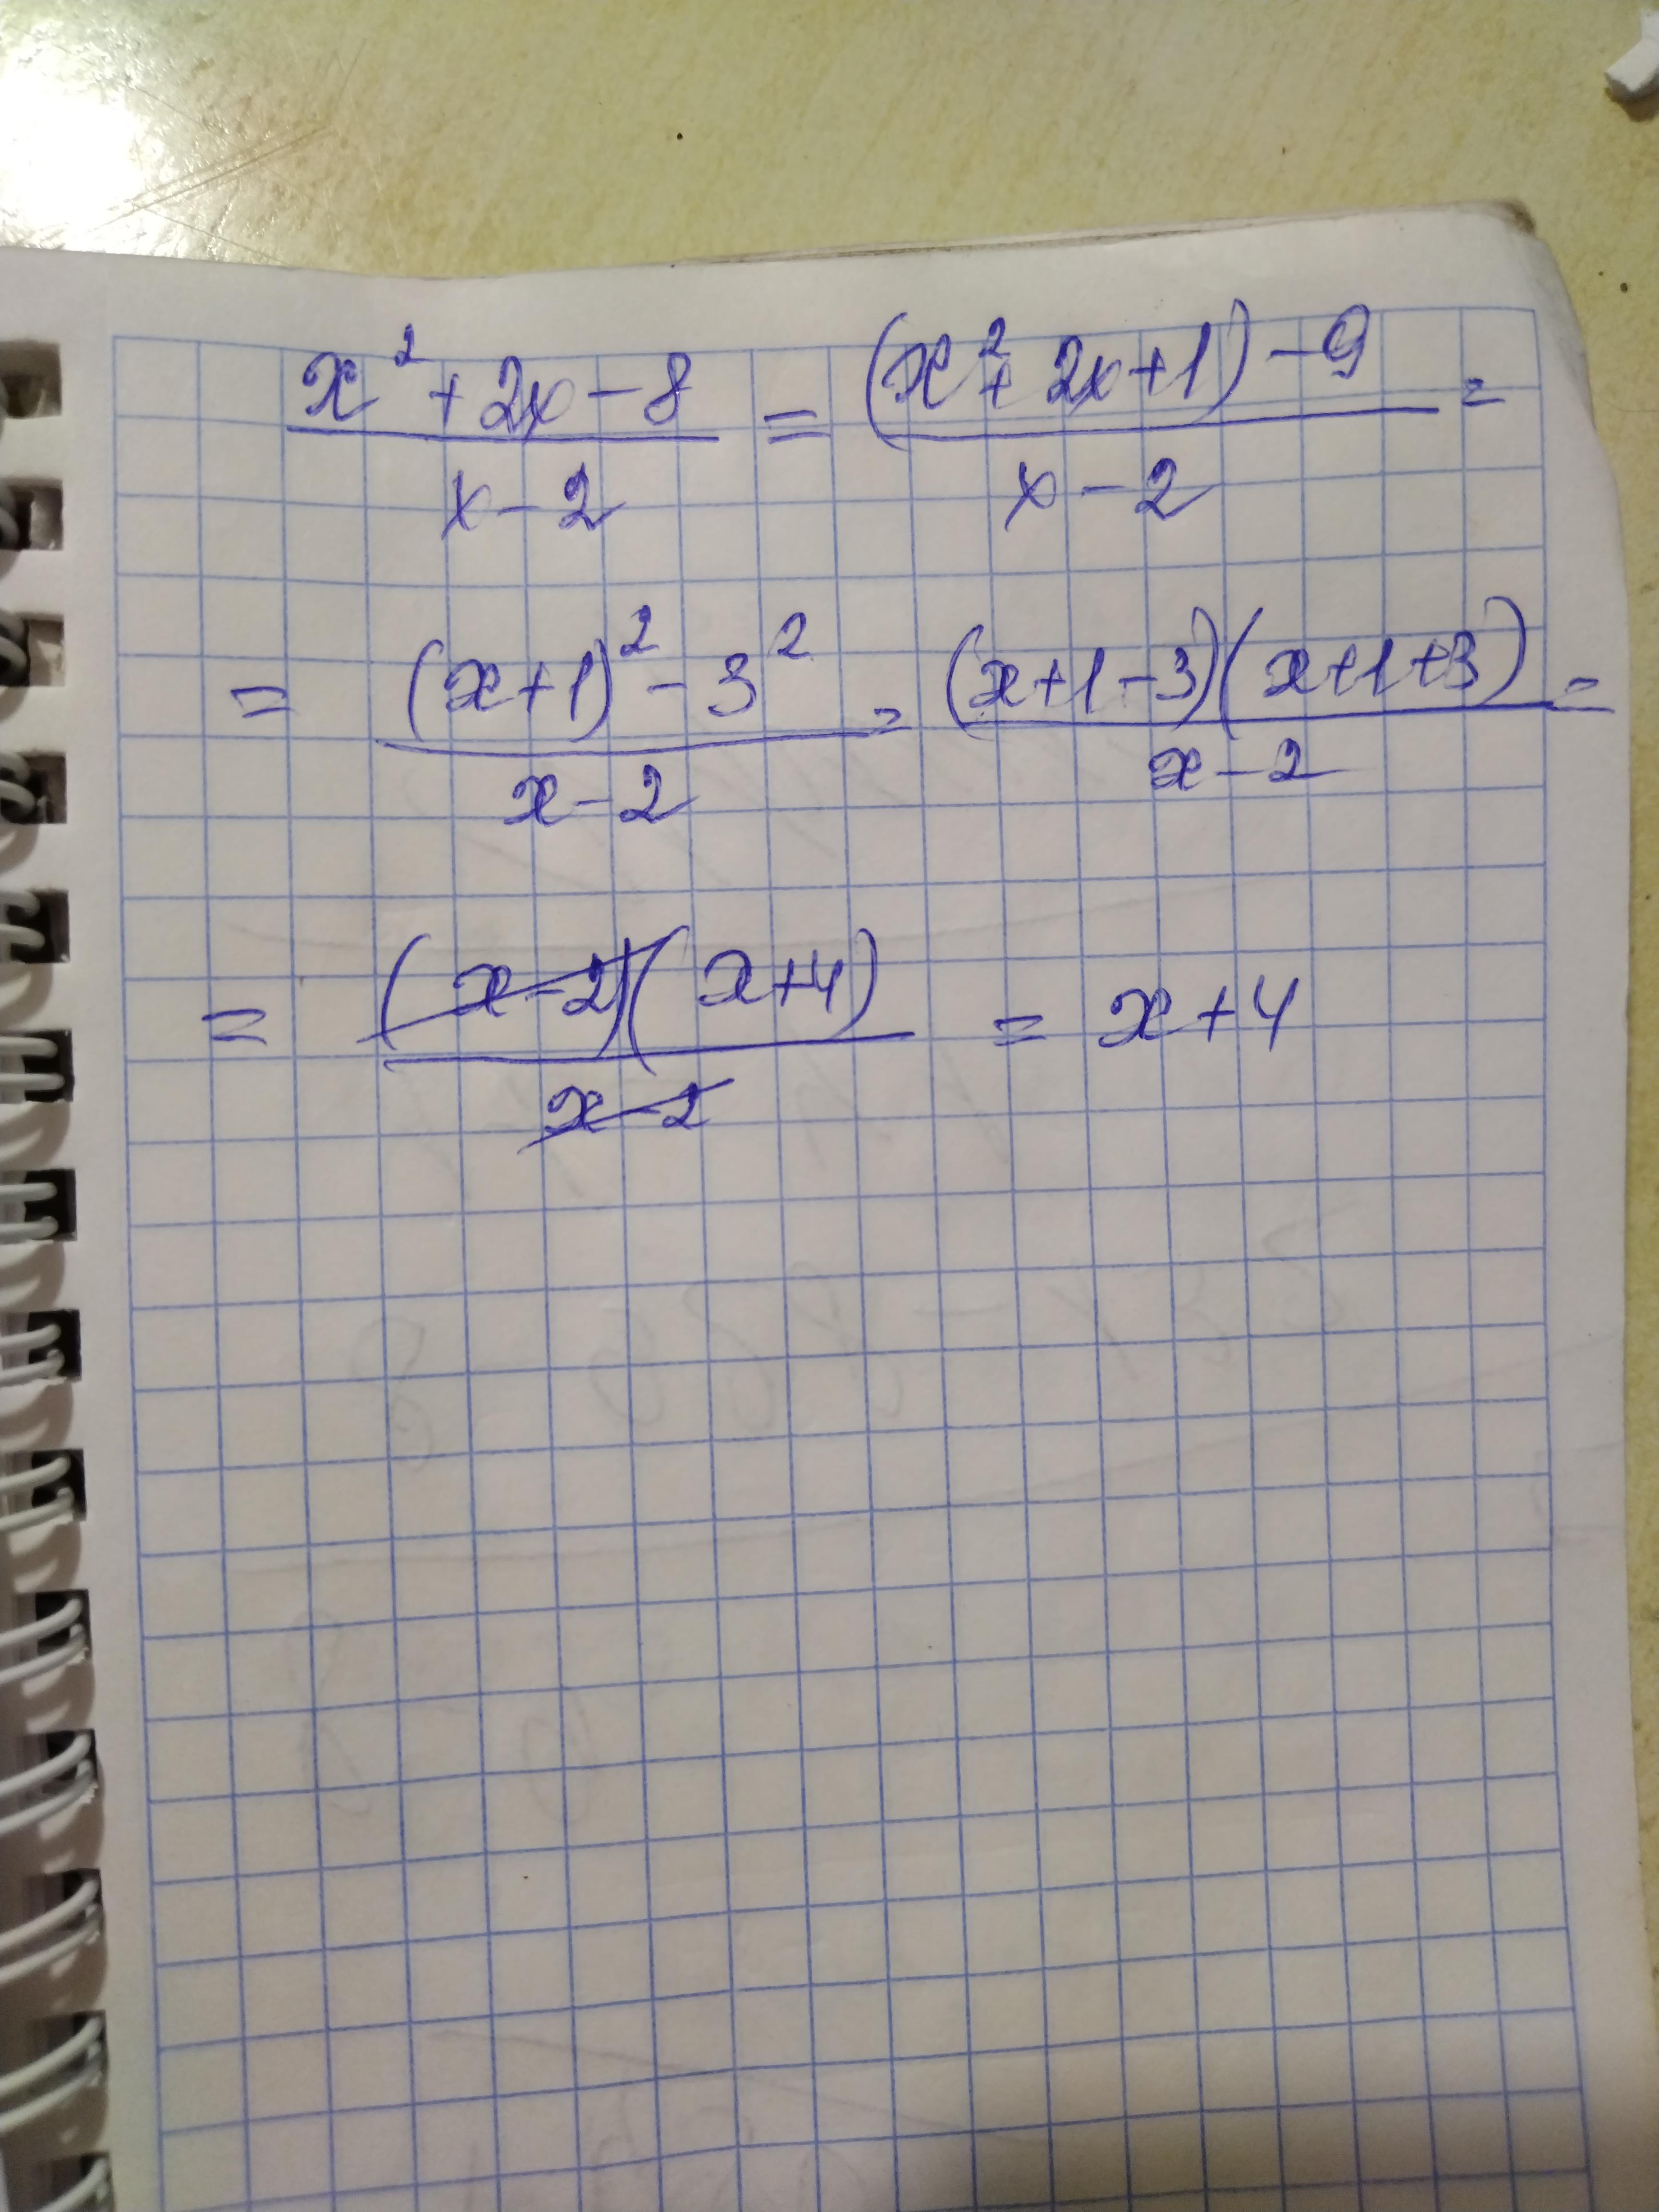 (x²+2x-8)/(x-2) = ((x²+2x+1)-9)/(x-2) =
= ((x+1)²-3²)/(x-2) = ((x+1-3)(x+1+3))/(x-2) =
= ((x-2)(x+4))/(x-2) = x+4